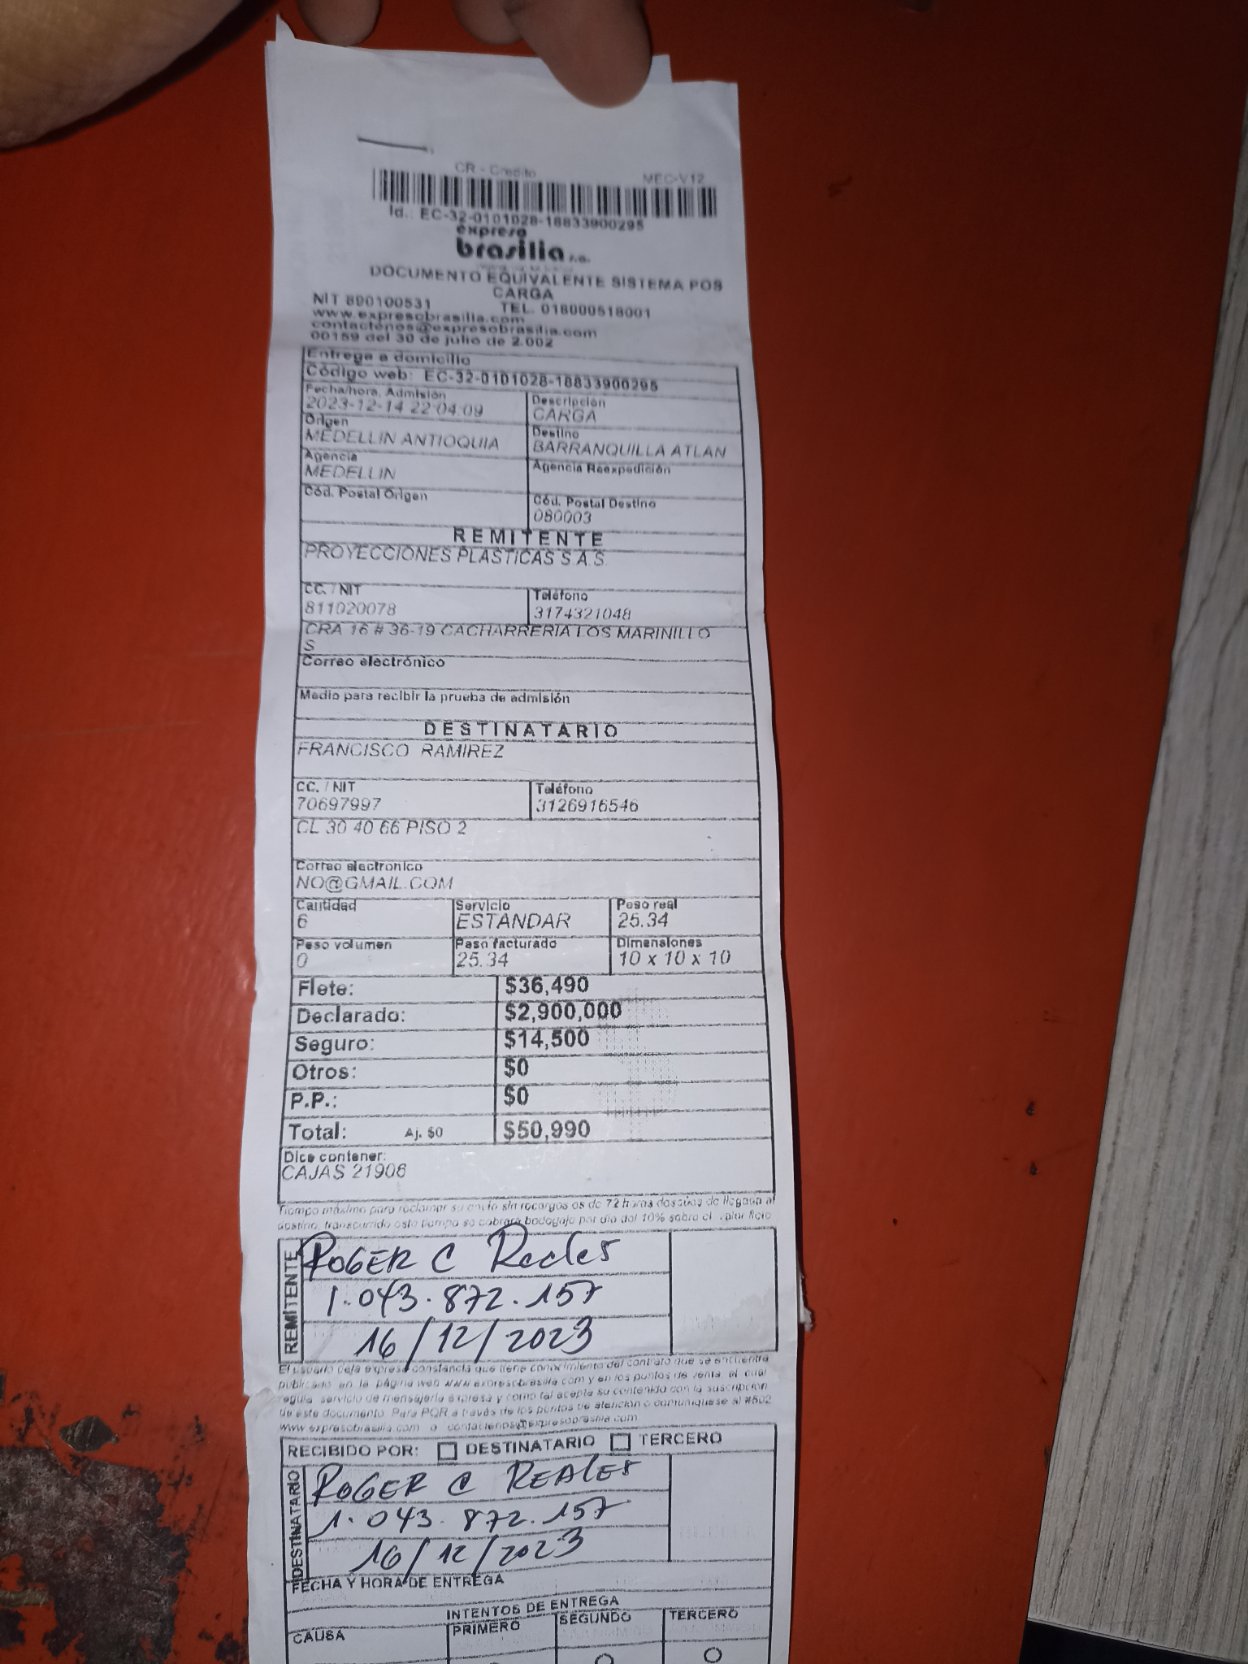 CR - Credito MEC-V12
Id.: EC-32-0101028-18833900295
expreso
brasilia s.a.
DOCUMENTO EQUIVALENTE SISTEMA POS
CARGA
NIT 890100531 TEL. 018000518001
www.expresobrasilia.com
contactenos@expresobrasilia.com
00159 del 30 de julio de 2.002
Entrega a domicilio
Código web: EC-32-0101028-18833900295
Fecha/hora. Admisión Descripción
2023-12-14 22:04:09 CARGA
Origen Destino
MEDELLIN ANTIOQUIA BARRANQUILLA ATLAN
Agencia Agencia Reexpedición
MEDELLIN
Cód. Postal Origen Cód. Postal Destino
080003
REMITENTE
PROYECCIONES PLASTICAS S.A.S.
CC. / NIT Teléfono
811020078 3174321048
CRA 16 # 36-19 CACHARRERIA LOS MARINILLO
S
Correo electrónico
Medio para recibir la prueba de admisión
DESTINATARIO
FRANCISCO RAMIREZ
CC. / NIT Teléfono
70697997 3126916546
CL 30 40 66 PISO 2
Correo electronico
NO@GMAIL.COM
Cantidad Servicio Peso real
6 ESTANDAR 25.34
Peso volumen Peso facturado Dimensiones
0 25.34 10 x 10 x 10
Flete: $36,490
Declarado: $2,900,000
Seguro: $14,500
Otros: $0
P.P.: $0
Total: Aj. $0 $50,990
Dice contener:
CAJAS 21906
Tiempo máximo para reclamar su envío sin recargos es de 72 horas después de llegada al
destino, transcurrido este tiempo se cobrará bodegaje por día del 10% sobre el valor flete
REMITENTE
ROGER C Reales
1.043.872.157
16/12/2023
El usuario deja expresa constancia que tiene conocimiento del contrato que se encuentra
publicado en la página web www.expresobrasilia.com y en los puntos de venta, el cual
regula servicio de mensajería expresa y como tal acepta su contenido con la suscripción
de este documento. Para PQR a través de los puntos de atención o comuníquese al #502
www.expresobrasilia.com o contactenos@expresobrasilia.com
RECIBIDO POR: DESTINATARIO TERCERO
DESTINATARIO
ROGER C REALES
1.043.872.157
16/12/2023
FECHA Y HORA DE ENTREGA
INTENTOS DE ENTREGA
CAUSA PRIMERO SEGUNDO TERCERO